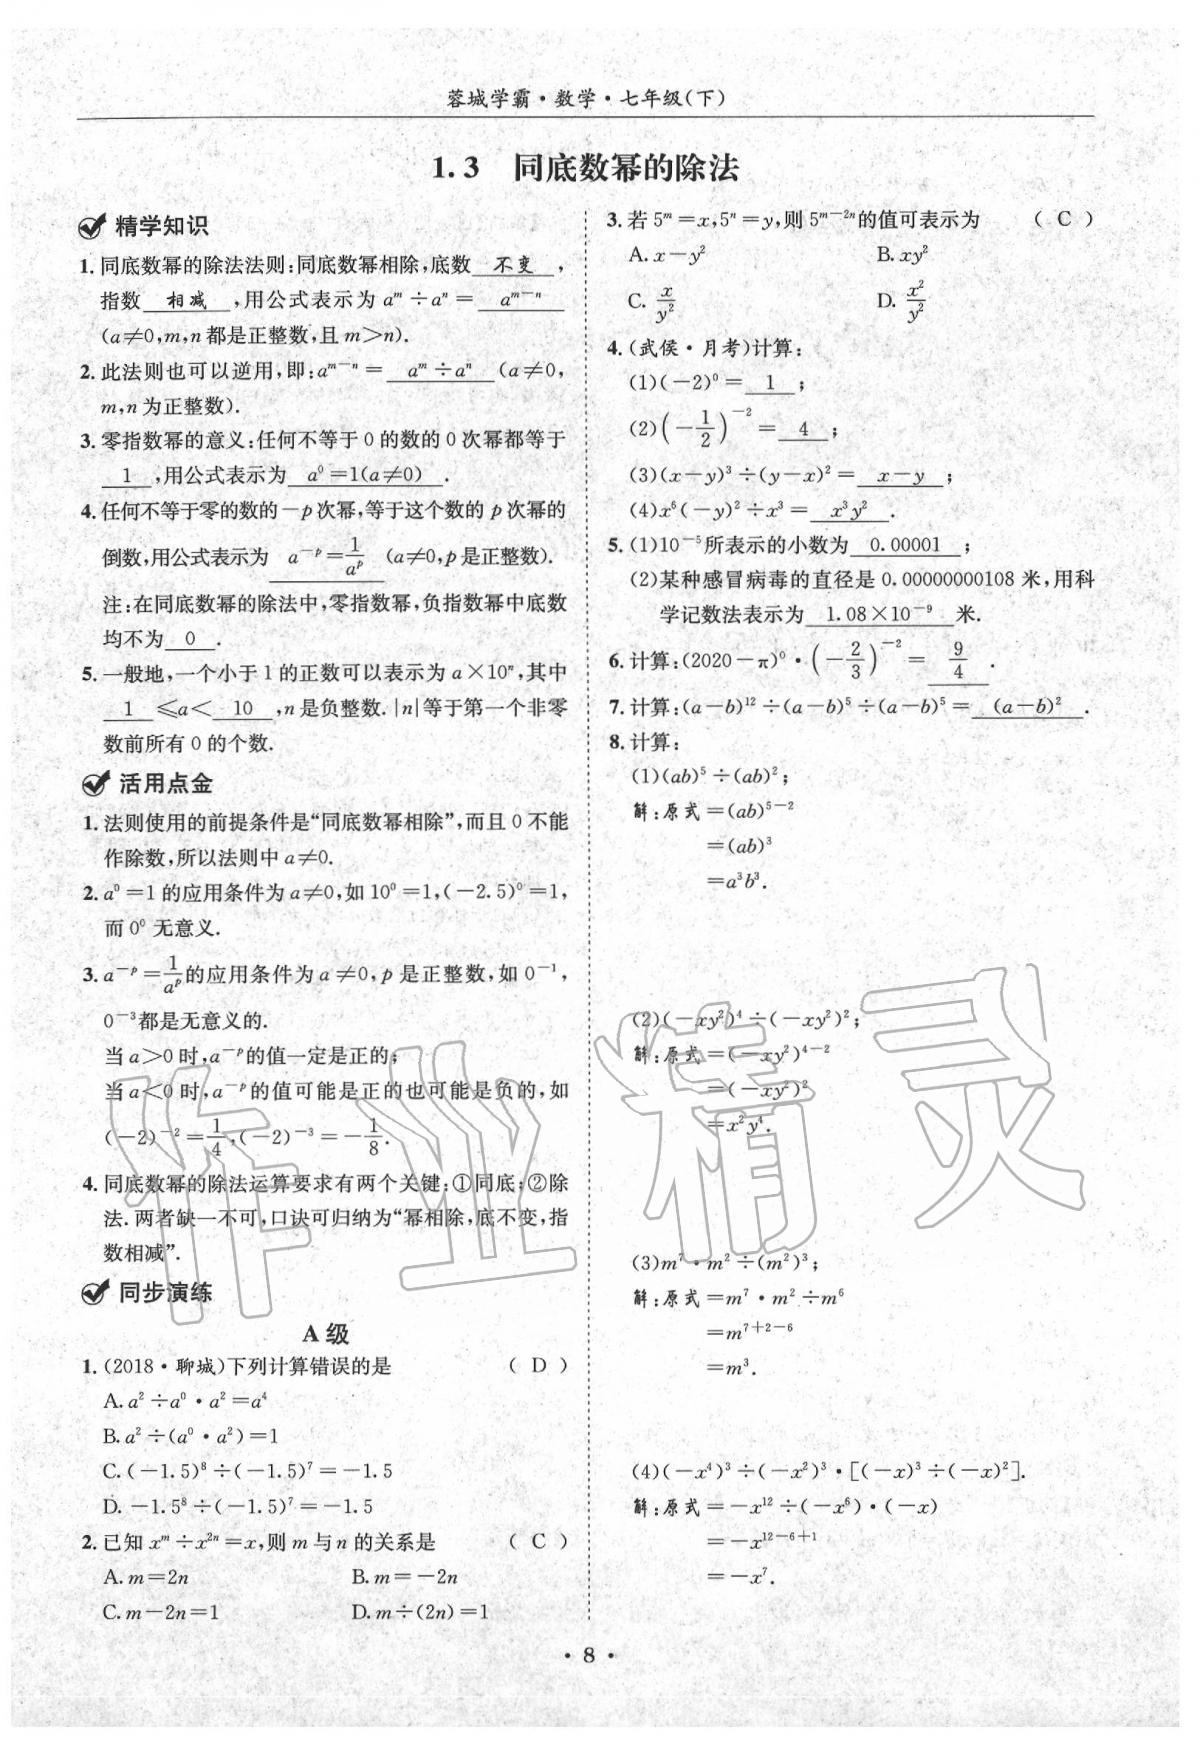 蓉城学霸·数学·七年级(下)
1.3 同底数幂的除法
精学知识
1.同底数幂的除法法则:同底数幂相除,底数 不变 ,
指数 相减 ,用公式表示为 aᵐ÷aⁿ= aᵐ⁻ⁿ
(a≠0,m,n都是正整数,且m>n).
2.此法则也可以逆用,即:aᵐ⁻ⁿ= aᵐ÷aⁿ (a≠0,
m,n为正整数).
3.零指数幂的意义:任何不等于0的数的0次幂都等于
1 ,用公式表示为 a⁰=1(a≠0) .
4.任何不等于零的数的-p次幂,等于这个数的p次幂的
倒数,用公式表示为 a⁻ᵖ=1/aᵖ (a≠0,p是正整数).
注:在同底数幂的除法中,零指数幂,负指数幂中底数
均不为 0 .
5.一般地,一个小于1的正数可以表示为a×10ⁿ,其中
1 ≤a< 10 ,n是负整数.|n|等于第一个非零
数前所有0的个数.
活用点金
1.法则使用的前提条件是“同底数幂相除”,而且0不能
作除数,所以法则中a≠0.
2.a⁰=1的应用条件为a≠0,如10⁰=1,(-2.5)⁰=1,
而0⁰无意义.
3.a⁻ᵖ=1/aᵖ的应用条件为a≠0,p是正整数,如0⁻¹,
0⁻³都是无意义的.
当a>0时,a⁻ᵖ的值一定是正的;
当a<0时,a⁻ᵖ的值可能是正的也可能是负的,如
(-2)⁻²=1/4,(-2)⁻³=-1/8.
4.同底数幂的除法运算要求有两个关键:①同底;②除
法.两者缺一不可,口诀可归纳为“幂相除,底不变,指
数相减”.
同步演练
A级
1.(2018·聊城)下列计算错误的是 ( D )
A.a²÷a⁰·a²=a⁴
B.a²÷(a⁰·a²)=1
C.(-1.5)⁸÷(-1.5)⁷=-1.5
D.-1.5⁸÷(-1.5)⁷=-1.5
2.已知xᵐ÷x²ⁿ=x,则m与n的关系是 ( C )
A.m=2n B.m=-2n
C.m-2n=1 D.m÷(2n)=1
3.若5ᵐ=x,5ⁿ=y,则5ᵐ⁻²ⁿ的值可表示为 ( C )
A.x-y² B.xy²
C. x/y² D. x²/y²
4.(武侯·月考)计算:
(1)(-2)⁰= 1 ;
(2)(-1/2)⁻²= 4 ;
(3)(x-y)³÷(y-x)²= x-y ;
(4)x⁶(-y)²÷x³= x³y² .
5.(1)10⁻⁵所表示的小数为 0.00001 ;
(2)某种感冒病毒的直径是0.00000000108米,用科
学记数法表示为 1.08×10⁻⁹ 米.
6.计算:(2020-π)⁰·(-2/3)⁻²= 9/4 .
7.计算:(a-b)¹²÷(a-b)⁵÷(a-b)⁵= (a-b)² .
8.计算:
(1)(ab)⁵÷(ab)²;
解:原式=(ab)⁵⁻²
=(ab)³
=a³b³.
(2)(-xy²)⁴÷(-xy²)²;
解:原式=(-xy²)⁴⁻²
=(-xy²)²
=x²y⁴.
(3)m⁷·m²÷(m²)³;
解:原式=m⁷·m²÷m⁶
=m⁷⁺²⁻⁶
=m³.
(4)(-x⁴)³÷(-x²)³·[(-x)³÷(-x)²].
解:原式=-x¹²÷(-x⁶)·(-x)
=-x¹²⁻⁶⁺¹
=-x⁷.
·8·
作业精灵